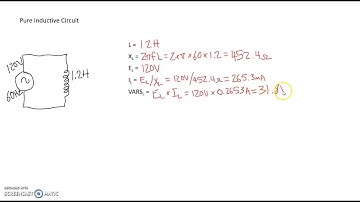 Pure Inductive Circuit
120V
60Hz
1.2H
L = 1.2H
XL = 2πfL = 2×π×60×1.2 = 452.4Ω
EL = 120V
IL = EL/XL = 120V/452.4Ω = 265.3mA
VARSL = EL × IL = 120V × 0.2653A = 31.8
RECORDED WITH
SCREENCAST-O-MATIC